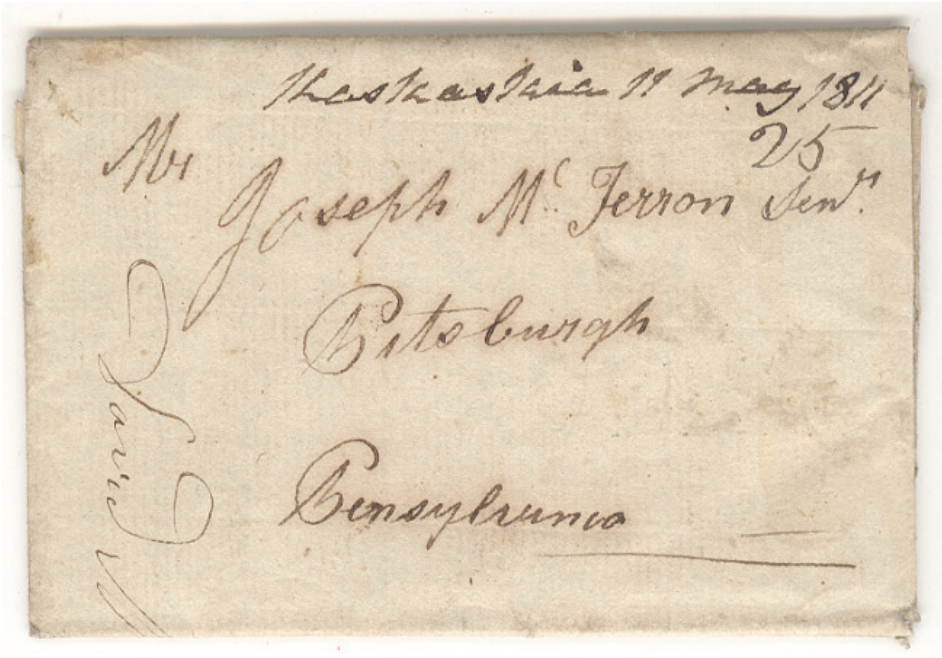 Kaskaskia 11 May 1811
25
Mr
Joseph Mc. Ferron Senr.
Pitsburgh
Pensylvania
David